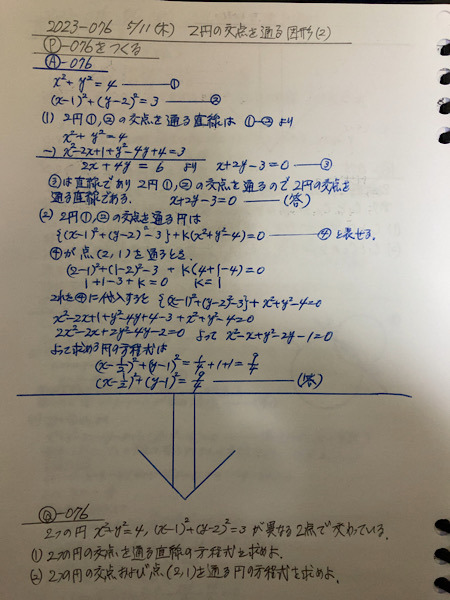 2023-076 5/11(木) 2円の交点を通る図形(2)
Ⓟ-076をつくる
Ⓐ-076
x²+y²=4 ―― ①
(x-1)²+(y-2)²=3 ―― ②
(1) 2円①,②の交点を通る直線は ①-②より
x²+y²=4
-) x²-2x+1+y²-4y+4=3
2x+4y=6 より x+2y-3=0 ―― ③
③は直線であり2円①,②の交点を通るので2円の交点を
通る直線である. x+2y-3=0 ――(答)
(2) 2円①,②の交点を通る円は
{(x-1)²+(y-2)²-3}+k(x²+y²-4)=0 ―― ④ と表せる.
④が点(2,1)を通るとき.
(2-1)²+(1-2)²-3+k(4+1-4)=0
1+1-3+k=0 k=1
これを④に代入すると {(x-1)²+(y-2)²-3}+x²+y²-4=0
x²-2x+1+y²-4y+4-3+x²+y²-4=0
2x²-2x+2y²-4y-2=0 よって x²-x+y²-2y-1=0
よって求める円の方程式は
(x-1/2)²+(y-1)²=1/4+1+1=9/4
(x-1/2)²+(y-1)²=9/4 ――(答)
Ⓠ-076
2つの円 x²+y²=4, (x-1)²+(y-2)²=3 が異なる2点で交わっている.
① 2つの円の交点を通る直線の方程式を求めよ.
② 2つの円の交点および点(2,1)を通る円の方程式を求めよ.